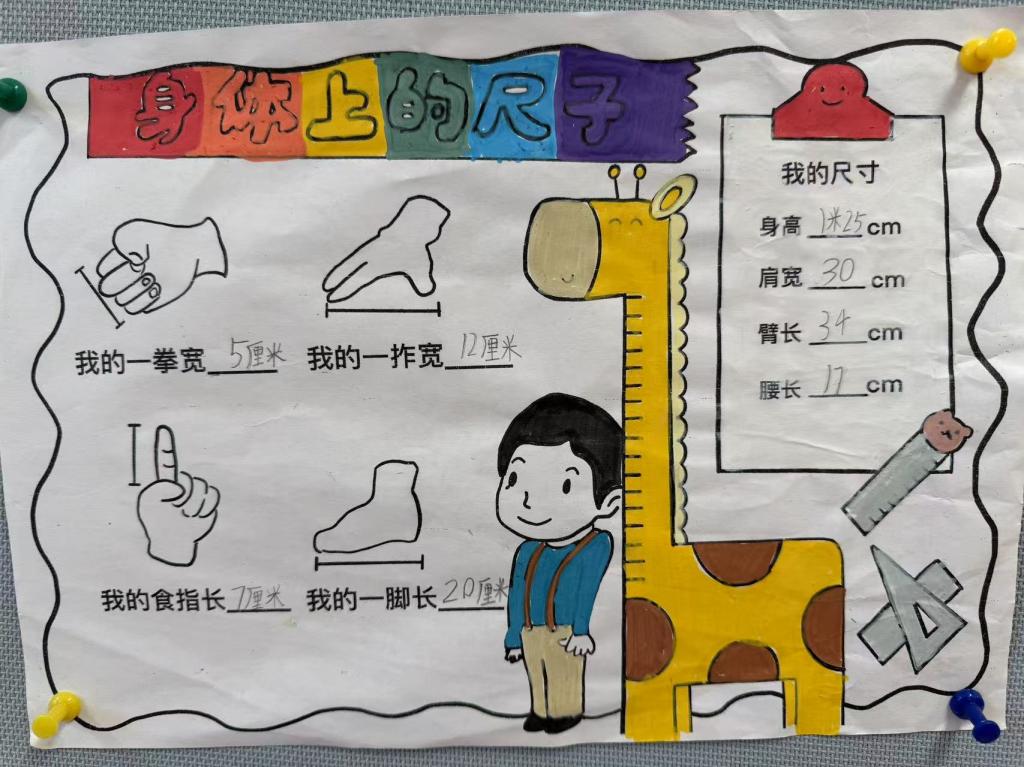 身体上的尺子
我的一拳宽 5厘米
我的一拃宽 12厘米
我的食指长 7厘米
我的一脚长 20厘米
我的尺寸
身高 1米25 cm
肩宽 30 cm
臂长 34 cm
腰长 17 cm